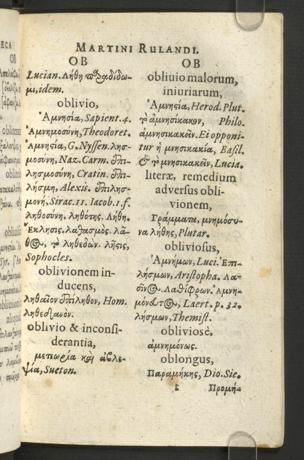 MARTINI RULANDI.
OB
Lucian. Λήθη παραδίδω-
μι, idem.
oblivio,
Αμνησία, Sapient. 4.
Αμνημοσύνη, Theodoret.
Αμνησία, G. Nyssen. λησ-
μοσύνη, Naz. Carm. ἐπι-
λησμοσύνη, Cratin. ἐπι-
λήσμη, Alexis. ἐπιλησ-
μονή, Sirac. 11. Iacob. 1. f.
ληθοσύνη. ληθότης. Λήθη.
Εκλησις. λαθασμός. λᾶ-
θος, τὸ ληθεδών. λῆσις,
Sophocles.
oblivionem in-
ducens,
ληθαῖον ἐπίληθον, Hom.
oblivio & inconsi-
derantia,
μετεωρία καὶ ἀβλε-
ψία, Sueton.
OB
obliuio malorum,
iniuriarum,
Αμνησία, Herod. Plut.
τὸ ἀμνησίκακον, Philo.
ἀμνησικακεῖν. Ei opponi-
tur ἡ μνησικακία, Basil.
& τὸ μνησικακεῖν, Lucia.
literæ, remedium
adversus obli-
vionem,
Γράμματα, μνημόσυ-
να λήθης, Plutar.
obliviosus,
Αμνήμων, Luci. Επι-
λήσμων, Aristopha. Λα-
Λαθίφρων. Αμνη-
Laert. p. 32.
λήσμων, Themist.
obliviosè,
ἀμνημόνως.
oblongus,
Παραμήκης, Dio. Sic.
Προμή-